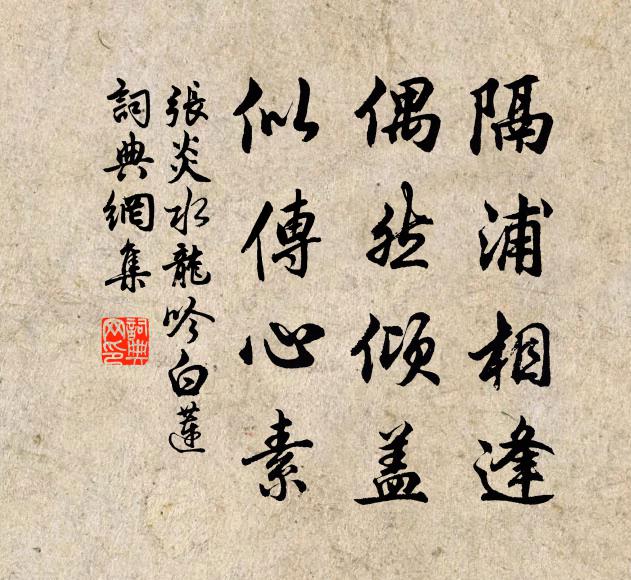 隔浦相逢
偶然傾蓋
似傳心素
張炎水龍吟白蓮
詞典網集
詞典网印